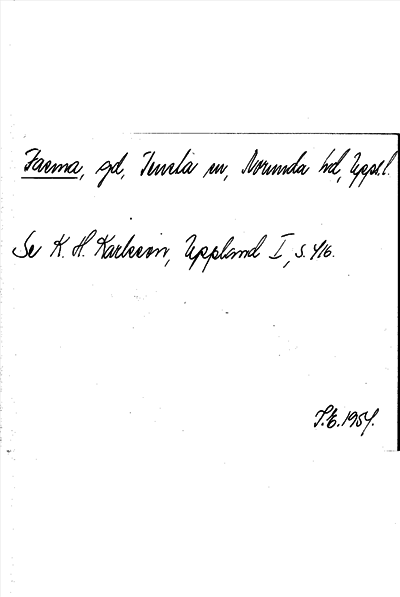 Fasma, gd, Tensta sn, Norunda hd, Uppl.
Se K. H. Karlsson, Uppland I, s. 416.
T.E. 1954.